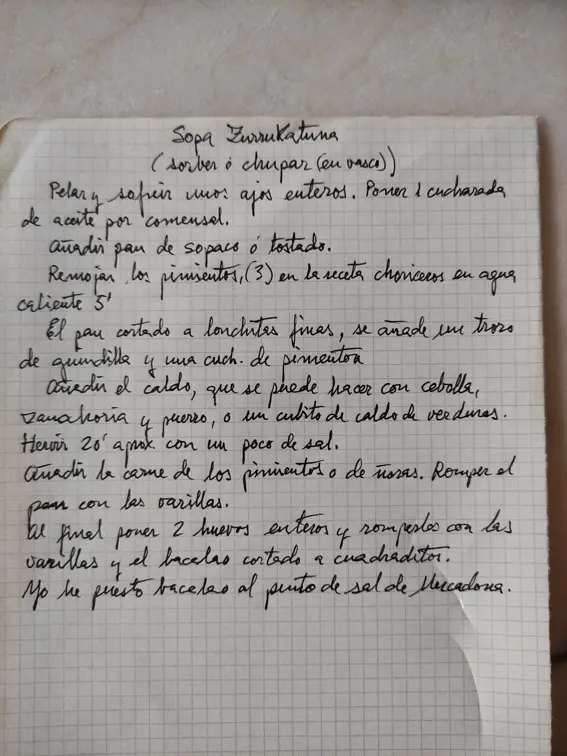 Sopa Zurrukatuna
(sorber ó chupar (en vasco))
Pelar y sofreir unos ajos enteros. Poner 1 cucharada
de aceite por comensal.
Añadir pan de sopaco ó tostado.
Remojar los pimientos, (3) en la receta choriceros en agua
caliente 5'
El pan cortado a lonchitas finas, se añade un trozo
de guindilla y una cuch. de pimentón
Añadir el caldo, que se puede hacer con cebolla,
zanahoria y puerro, o un cubito de caldo de verduras.
Hervir 20' aprox. con un poco de sal.
Añadir la carne de los pimientos o de ñoras. Romper el
pan con las varillas.
Al final poner 2 huevos enteros y romperlos con las
varillas y el bacalao cortado a cuadraditos.
Yo he puesto bacalao al punto de sal de Mercadona.